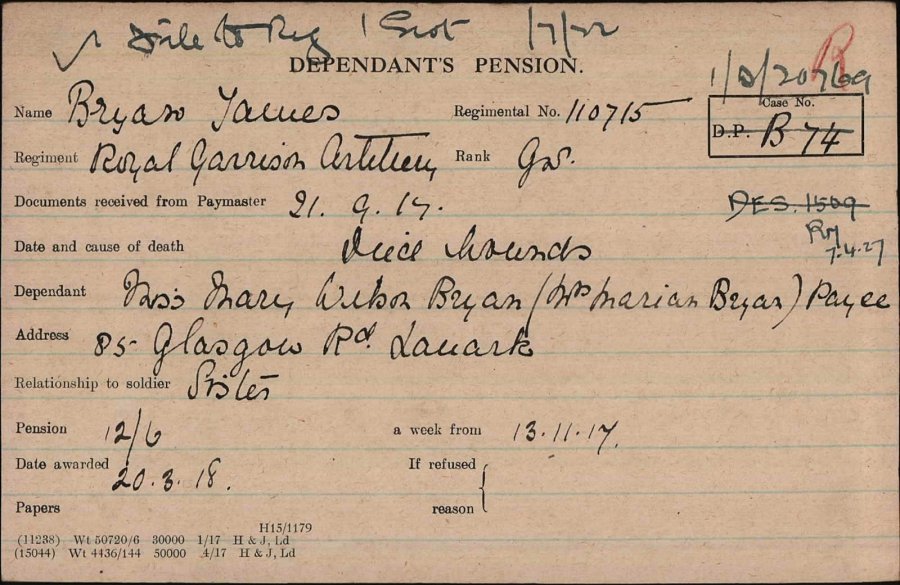 ✓ File to Reg 1 Scot 1/7/22
DEPENDANT'S PENSION.
R
1/D/20769
Name Bryan James Regimental No. 110715
Case No.
D.P. B 74
Regiment Royal Garrison Artillery Rank Gnr.
Documents received from Paymaster 21. 9. 17.
DES. 1509
7.4.27
Date and cause of death Died Wounds
Dependant Miss Mary Wilson Bryan (Mrs Marian Bryan) Payee
Address 85 Glasgow Rd. Lanark
Relationship to soldier Sister
Pension 12/6 a week from 13.11.17.
Date awarded 20.3.18. If refused
Papers reason
H15/1179
(11238) Wt 50720/6 30000 1/17 H & J, Ld
(15044) Wt 4436/144 50000 4/17 H & J, Ld